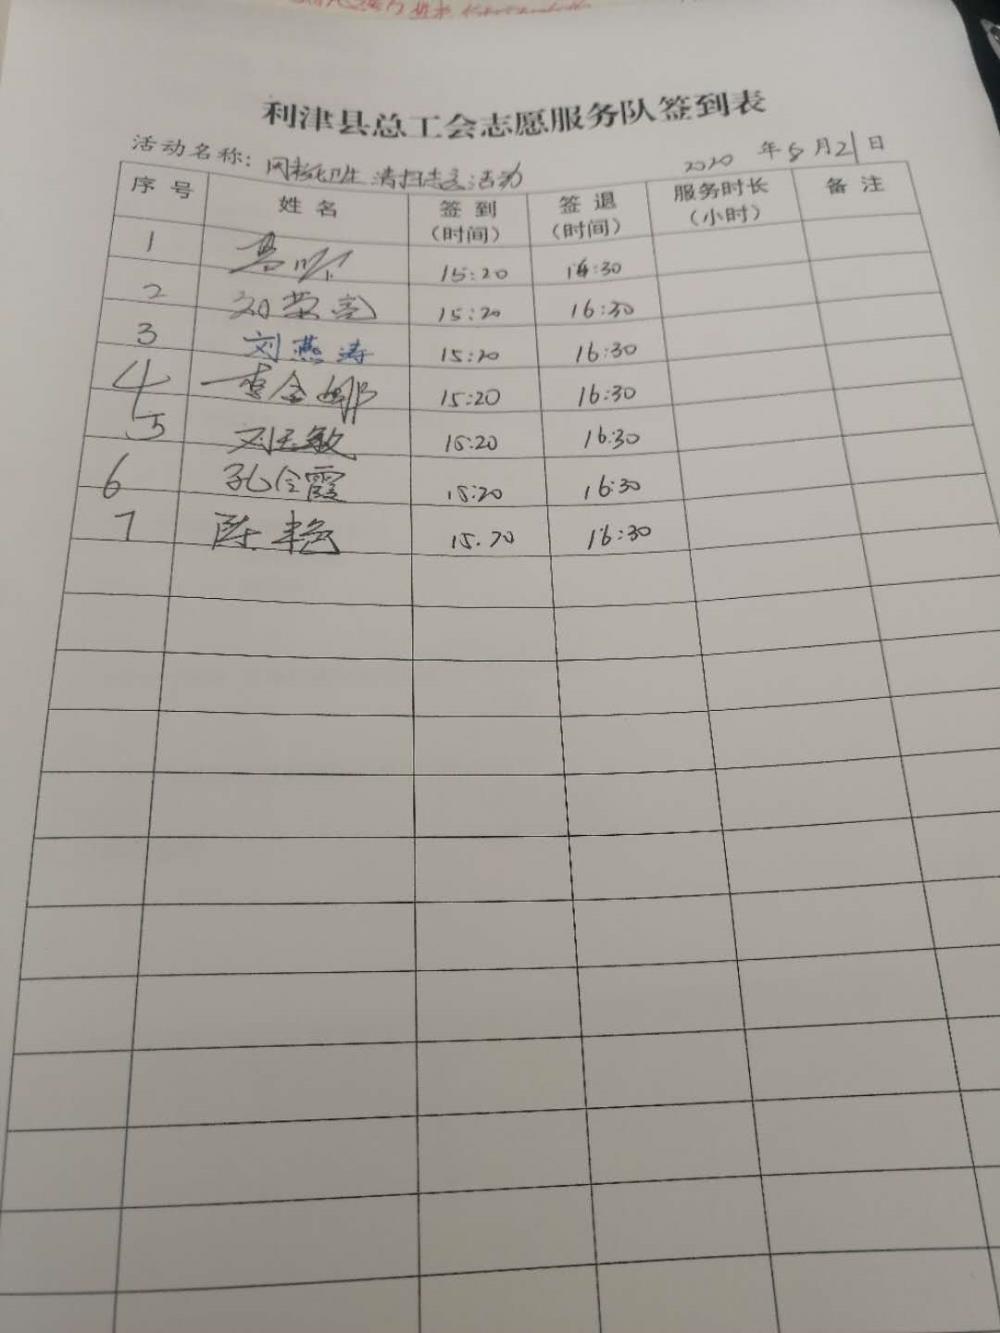 利津县总工会志愿服务队签到表
活动名称: 网格卫生清扫志愿活动 2020 年 5 月 21 日
序号 姓名 签到(时间) 签退(时间) 服务时长(小时) 备注
1 15:20 16:30
2 刘荣亮 15:20 16:30
3 刘燕涛 15:20 16:30
4 李金娜 15:20 16:30
5 刘玉敏 15:20 16:30
6 孔令霞 15:20 16:30
7 陈艳 15.20 16:30